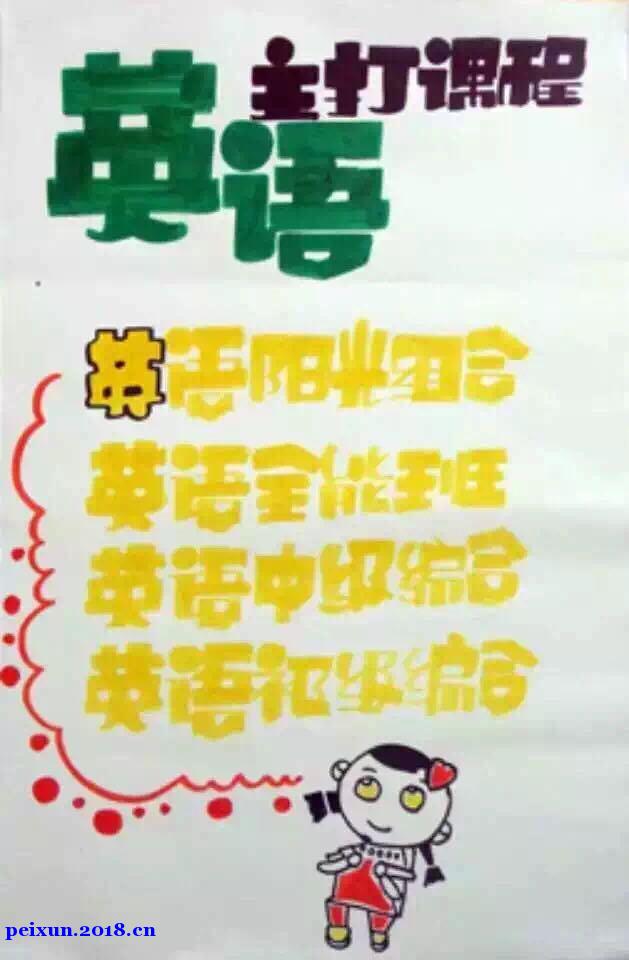 主打课程
英语
英语阳光组合
英语全能班
英语中级编合
英语初级编合
peixun.2018.cn